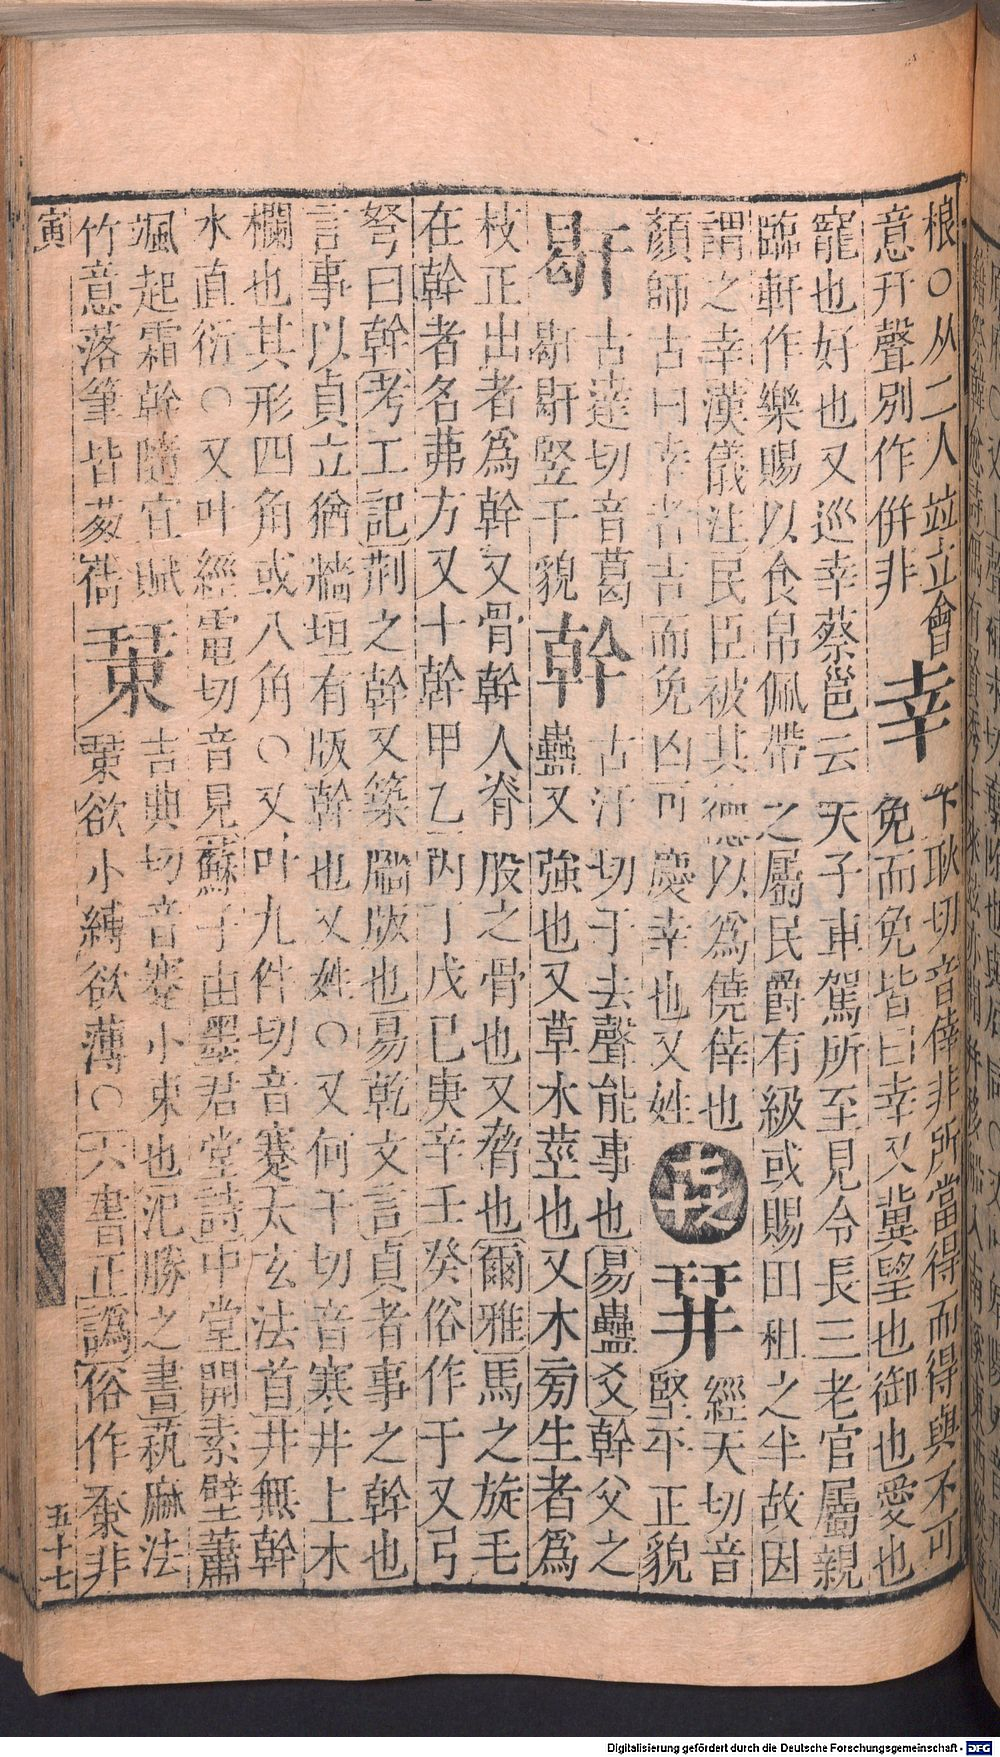 根○从二人竝立會　下耿切音倖非所當得而得與不可
意幵聲別作倂非　幸　免而免皆曰幸又冀望也御也愛也
寵也好也又巡幸蔡邕云天子車駕所至見令長三老官屬親
臨軒作樂賜以食帛佩帶之屬民爵有級或賜田租之半故因
謂之幸漢儀注民臣被其德以爲僥倖也　經天切音
顏師古曰幸者吉而免凶可慶幸也又姓　堅平正貌
古達切音葛　古汗切干去聲能事也易蠱爻幹父之
豎干貌　幹　蠱又強也又草木莖也又木旁生者爲
枝正出者爲幹又骨幹人脊股之骨也又脅也爾雅馬之旋毛
在幹者名茀方又十幹甲乙丙丁戊已庚辛壬癸俗作干又弓
弩曰幹考工記荆之幹又築牆版也易乾文言貞者事之幹也
言事以貞立猶牆垣有版幹也又姓○又何干切音寒井上木
欄也其形四角或八角○又叶九件切音蹇太玄法首井無幹
水直衍○又叶經電切音見蘇子由墨君堂詩中堂開素壁蕭
颯起霜幹隨宜賦　吉典切音蹇小束也氾勝之書蓺麻法
竹意落筆皆　欲小縛欲薄○六書正譌俗作　非
寅　五十七
Digitalisierung gefördert durch die Deutsche Forschungsgemeinschaft - DFG